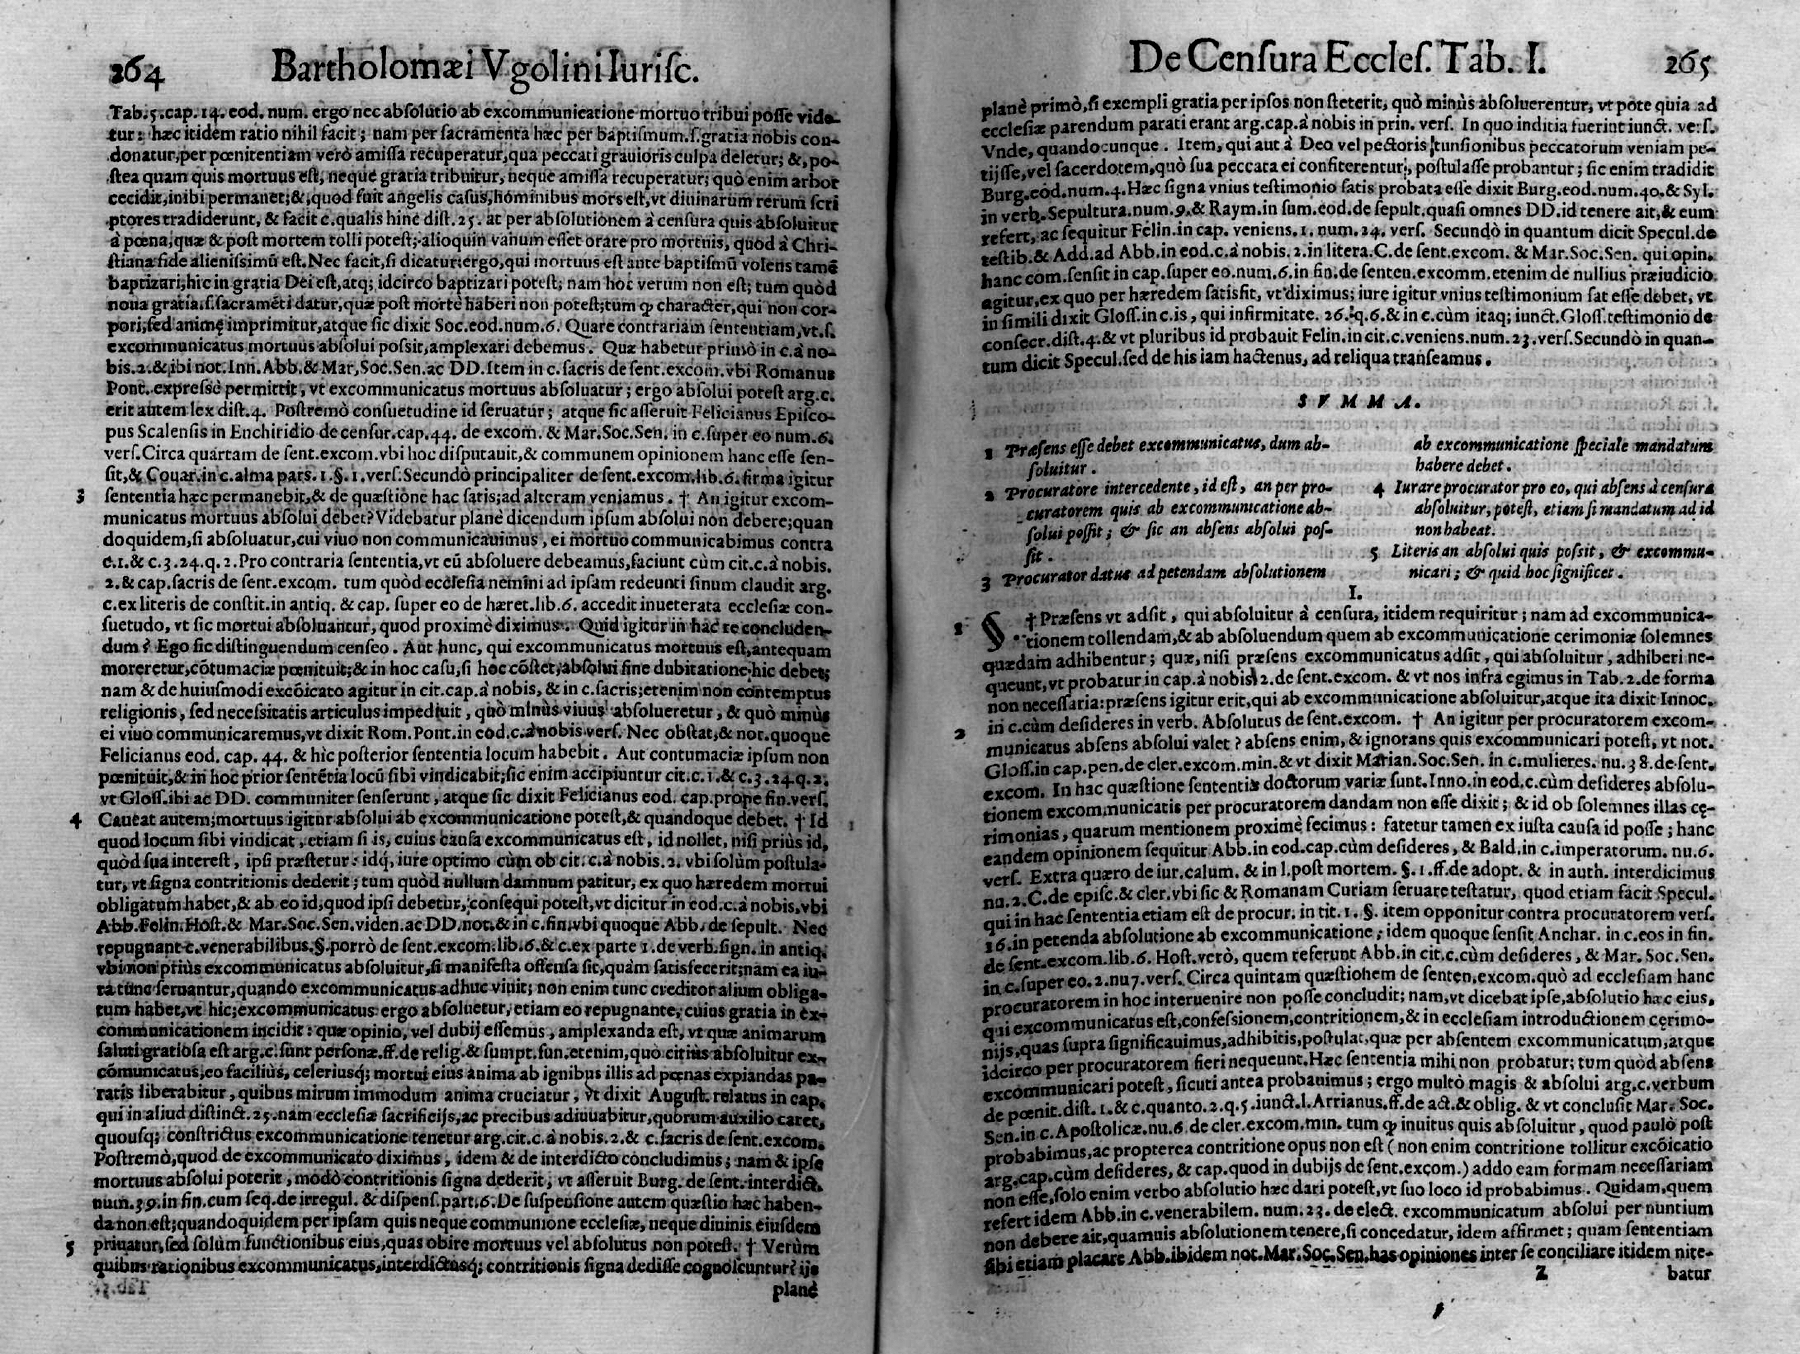 264 Bartholomæi Vgolini Iurisc.
Tab.5.cap.14. eod. num. ergo nec absolutio ab excommunicatione mortuo tribui posse vide-
tur: hæc itidem ratio nihil facit; nam per sacramenta hæc per baptismum.s.gratia nobis con-
donatur,per pœnitentiam verò amissa recuperatur,qua peccati grauioris culpa deletur; &,po-
stea quam quis mortuus est, neque gratia tribuitur, neque amissa recuperatur; quò enim arbor
cecidit,inibi permanet;&,quod fuit angelis casus,hominibus mors est,vt diuinarum rerum scri
ptores tradiderunt, & facit c.qualis hinc dist.25. at per absolutionem à censura quis absoluitur
à pœna,quæ & post mortem tolli potest; alioquin vanum esset orare pro mortuis, quod à Chri-
stiana fide alienissimū est. Nec facit,si dicatur:ergo,qui mortuus est ante baptismū volens tamē
baptizari,hic in gratia Dei est,atq; idcirco baptizari potest; nam hoc verum non est; tum quòd
noua gratia.s.sacramēti datur,quæ post mortē haberi non potest;tum ꝙ character,qui non cor-
pori,sed animę imprimitur,atque sic dixit Soc.eod.num.6. Quare contrariam sententiam,vt.s.
excommunicatus mortuus absolui possit,amplexari debemus. Quæ habetur primò in c.à no-
bis.2.& ibi not.Inn.Abb.& Mar.Soc.Sen.ac DD. Item in c. sacris de sent.excom.vbi Romanus
Pont. expressè permittit, vt excommunicatus mortuus absoluatur; ergo absolui potest arg.c.
erit autem lex dist.4. Postremò consuetudine id seruatur; atque sic asseruit Felicianus Episco-
pus Scalensis in Enchiridio de censur.cap.44. de excom. & Mar.Soc.Sen. in c.super eo num.6.
vers.Circa quartam de sent.excom.vbi hoc disputauit,& communem opinionem hanc esse sen-
sit,& Couar.in c.alma pars.1.§.1.vers.Secundò principaliter de sent.excom.lib.6. firma igitur
3 sententia hæc permanebit,& de quæstione hac satis;ad alteram veniamus. † An igitur excom-
municatus mortuus absolui debet? Videbatur planè dicendum ipsum absolui non debere;quan
doquidem,si absoluatur,cui viuo non communicauimus, ei mortuo communicabimus contra
c.1.& c.3.24.q.2.Pro contraria sententia,vt eū absoluere debeamus,faciunt cùm cit.c.à nobis.
2.& cap.sacris de sent.excom. tum quòd ecclesia nemini ad ipsam redeunti sinum claudit arg.
c.ex literis de constit.in antiq. & cap. super eo de hæret.lib.6. accedit inueterata ecclesiæ con-
suetudo, vt sic mortui absoluantur, quod proximè diximus. Quid igitur in hac re concluden-
dum? Ego sic distinguendum censeo. Aut hunc, qui excommunicatus mortuus est,antequam
moreretur,cōtumaciæ pœnituit;& in hoc casu,si hoc cōstet,absolui sine dubitatione hic debet;
nam & de huiusmodi excōicato agitur in cit.cap.à nobis,& in c.sacris;etenim non contemptus
religionis, sed necessitatis articulus impediuit, quò minùs viuus absolueretur, & quò minùs
ei viuo communicaremus,vt dixit Rom.Pont.in eod.c.à nobis vers. Nec obstat,& not.quoque
Felicianus eod. cap. 44. & hîc posterior sententia locum habebit. Aut contumaciæ ipsum non
pœnituit,& in hoc prior sentētia locū sibi vindicabit;sic enim accipiuntur cit.c.1.& c.3.24.q.2.
vt Gloss.ibi ac DD. communiter senserunt, atque sic dixit Felicianus eod. cap.prope fin.vers.
4 Caueat autem;mortuus igitur absolui ab excommunicatione potest,& quandoque debet. † Id
quod locum sibi vindicat, etiam si is, cuius causa excommunicatus est, id nollet, nisi priùs id,
quòd sua interest, ipsi præstetur: idq́; iure optimo cùm ob cit.c.à nobis.2. vbi solùm postula-
tur, vt signa contritionis dederit; tum quòd nullum damnum patitur, ex quo hæredem mortui
obligatum habet,& ab eo id,quod ipsi debetur, consequi potest,vt dicitur in eod.c.à nobis.vbi
Abb.Felin.Host.& Mar.Soc.Sen.viden.ac DD.not.& in c.fin.vbi quoque Abb. de sepult. Nec
repugnant c.venerabilibus.§.porrò de sent.excom.lib.6.& c.ex parte 1.de verb.sign. in antiq.
vbi non priùs excommunicatus absoluitur,si manifesta offensa sit,quàm satisfecerit;nam ea iu-
ra tunc seruantur,quando excommunicatus adhuc viuit; non enim tunc creditor alium obliga-
tum habet,vt hic;excommunicatus ergo absoluetur, etiam eo repugnante, cuius gratia in ex-
communicationem incidit: quæ opinio, vel dubij essemus, amplexanda est, vt quæ animarum
saluti gratiosa est arg.c.sunt personæ.ff.de relig.& sumpt.fun.etenim,quò citiùs absoluitur ex-
cōmunicatus,eo faciliùs, celeriusq́; mortui eius anima ab ignibus illis ad pœnas expiandas pa-
ratis liberabitur, quibus mirum immodum anima cruciatur, vt dixit August. relatus in cap.
qui in aliud distinct.25.nam ecclesiæ sacrificijs,ac precibus adiuuabitur,quorum auxilio caret,
quousq; constrictus excommunicatione tenetur arg.cit.c.à nobis.2.& c.sacris de sent.excom.
Postremò,quod de excommunicato diximus, idem & de interdicto concludimus; nam & ipse
mortuus absolui poterit, modò contritionis signa dederit; vt asseruit Burg. de sent.interdict.
num.39.in fin.cum seq.de irregul. & dispens.part.6. De suspensione autem quæstio hæc haben-
da non est;quandoquidem per ipsam quis neque communione ecclesiæ, neque diuinis eiusdem
5 priuatur,sed solùm functionibus eius,quas obire mortuus vel absolutus non potest. † Verùm
quibus rationibus excommunicatus,interdictusq́; contritionis signa dedisse cognoscuntur? ijs
planè
De Censura Eccles. Tab. I. 265
planè primò,si exempli gratia per ipsos non steterit, quò minùs absoluerentur, vt pote quia ad
ecclesiæ parendum parati erant arg.cap.à nobis in prin. vers. In quo inditia fuerint iunct. vers.
Vnde, quandocunque. Item, qui aut à Deo vel pectoris tunsionibus peccatorum veniam pe-
tijsse,vel sacerdotem,quò sua peccata ei confiterentur, postulasse probantur; sic enim tradidit
Burg.eod.num.4.Hæc signa vnius testimonio satis probata esse dixit Burg.eod.num.40.& Syl.
in verb.Sepultura.num.9.& Raym.in sum.eod.de sepult.quasi omnes DD.id tenere ait,& eum
refert, ac sequitur Felin.in cap. veniens.1. num.24. vers. Secundò in quantum dicit Specul.de
testib.& Add.ad Abb.in eod.c.à nobis.2.in litera.C.de sent.excom. & Mar.Soc.Sen. qui opin.
hanc com.sensit in cap.super eo.num.6.in fin.de senten.excomm.etenim de nullius præiudicio
agitur,ex quo per hæredem satisfit, vt diximus; iure igitur vnius testimonium sat esse debet, vt
in simili dixit Gloss.in c.is, qui infirmitate. 26.q.6.& in c.cùm itaq; iunct.Gloss.testimonio de
consecr.dist.4.& vt pluribus id probauit Felin.in cit.c.veniens.num.23.vers.Secundò in quan-
tum dicit Specul.sed de his iam hactenus, ad reliqua transeamus.
SVMMA.
1 Præsens esse debet excommunicatus, dum ab-
soluitur.
2 Procuratore intercedente, id est, an per pro-
curatorem quis ab excommunicatione ab-
solui possit; & sic an absens absolui pos-
sit.
3 Procurator datus ad petendam absolutionem
ab excommunicatione speciale mandatum
habere debet.
4 Iurare procurator pro eo, qui absens à censura
absoluitur, potest, etiam si mandatum ad id
non habeat.
5 Literis an absolui quis possit, & excommu-
nicari; & quid hoc significet.
I.
1 § † Præsens vt adsit, qui absoluitur à censura, itidem requiritur; nam ad excommunica-
tionem tollendam,& ab absoluendum quem ab excommunicatione cerimoniæ solemnes
quædam adhibentur; quæ, nisi præsens excommunicatus adsit, qui absoluitur, adhiberi ne-
queunt,vt probatur in cap.à nobis 2.de sent.excom. & vt nos infrà egimus in Tab.2.de forma
non necessaria:præsens igitur erit,qui ab excommunicatione absoluitur,atque ita dixit Innoc.
2 in c.cùm desideres in verb. Absolutus de sent.excom. † An igitur per procuratorem excom-
municatus absens absolui valet? absens enim, & ignorans quis excommunicari potest, vt not.
Gloss.in cap.pen.de cler.excom.min.& vt dixit Marian.Soc.Sen. in c.mulieres. nu.38.de sent.
excom. In hac quæstione sententiæ doctorum variæ sunt. Inno.in eod.c.cùm desideres absolu-
tionem excommunicatis per procuratorem dandam non esse dixit; & id ob solemnes illas cę-
rimonias, quarum mentionem proximè fecimus: fatetur tamen ex iusta causa id posse; hanc
eandem opinionem sequitur Abb.in eod.cap.cùm desideres, & Bald.in c.imperatorum. nu.6.
vers. Extra quæro de iur.calum. & in l.post mortem. §.1.ff.de adopt. & in auth. interdicimus
nu.2.C.de episc.& cler.vbi sic & Romanam Curiam seruare testatur, quod etiam facit Specul.
qui in hac sententia etiam est de procur. in tit.1.§. item opponitur contra procuratorem vers.
16.in petenda absolutione ab excommunicatione; idem quoque sensit Anchar. in c.eos in fin.
de sent.excom.lib.6. Host.verò, quem referunt Abb.in cit.c.cùm desideres, & Mar. Soc. Sen.
in c.super eo.2.nu7.vers. Circa quintam quæstionem de senten.excom.quò ad ecclesiam hanc
procuratorem in hoc interuenire non posse concludit; nam,vt dicebat ipse,absolutio hæc eius,
qui excommunicatus est,confessionem,contritionem,& in ecclesiam introductionem cęrimo-
nijs,quas supra significauimus,adhibitis,postulat,quæ per absentem excommunicatum,atque
idcirco per procuratorem fieri nequeunt. Hæc sententia mihi non probatur; tum quòd absens
excommunicari potest, sicuti antea probauimus; ergo multò magis & absolui arg.c.verbum
de pœnit.dist.1.& c.quanto.2.q.5.iunct.l.Arrianus.ff.de act.& oblig. & vt conclusit Mar. Soc.
Sen.in c.Apostolicæ.nu.6.de cler.excom.min. tum ꝙ inuitus quis absoluitur, quod paulò pòst
probabimus,ac propterea contritione opus non est ( non enim contritione tollitur excōicatio
arg.cap.cùm desideres, & cap.quod in dubijs de sent.excom.) addo eam formam necessariam
non esse,solo enim verbo absolutio hæc dari potest,vt suo loco id probabimus. Quidam,quem
refert idem Abb.in c.venerabilem. num.23.de elect. excommunicatum absolui per nuntium
non debere ait,quamuis absolutionem tenere,si concedatur, idem affirmet; quam sententiam
sibi etiam placare Abb.ibidem not.Mar.Soc.Sen.has opiniones inter se conciliare itidem nite-
Z batur